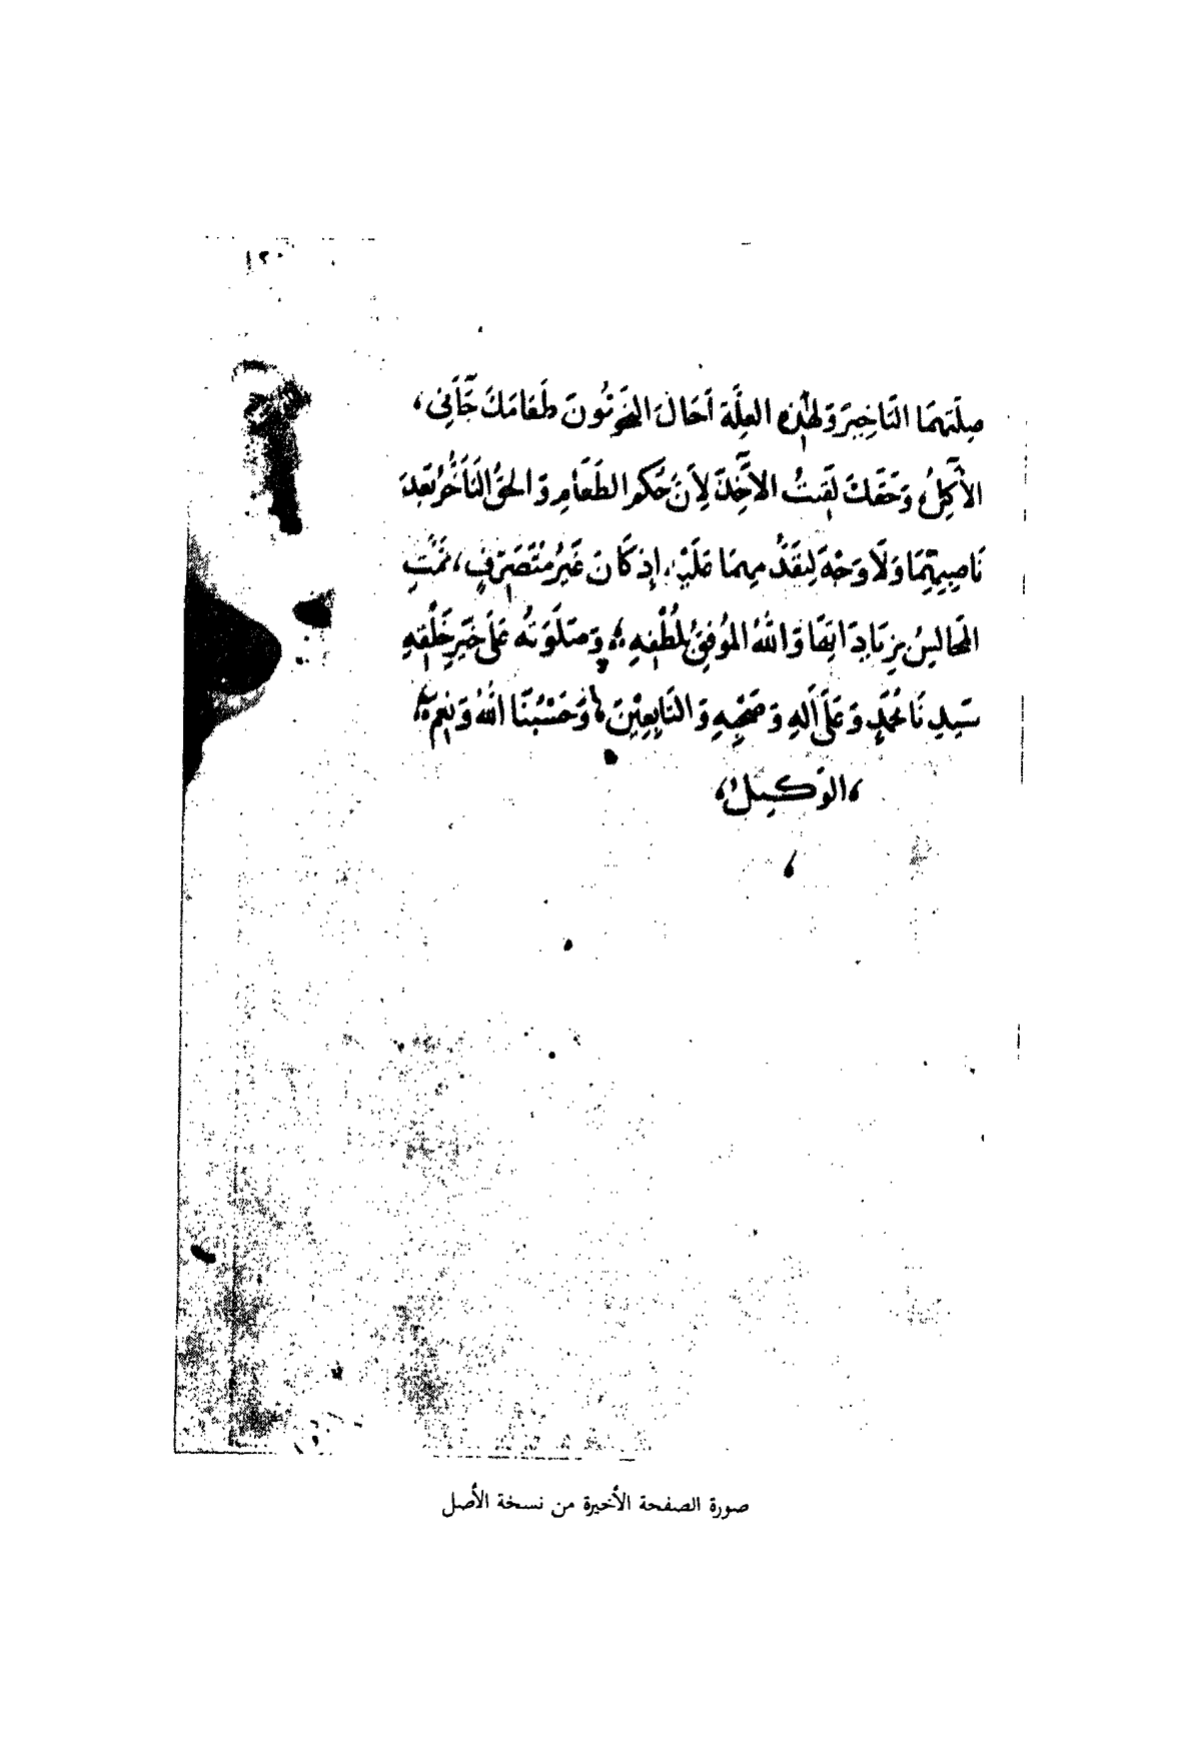 ١٢٠
صِلَتِهِمَا التَّاخِيرَ وَلِهٰذِهِ العِلَّةِ أَحَالَ النَّحَوِيُّونَ طَعَامَكَ جَآءَنِى
الآكِلُ وَحَقَّكَ لَقِيتُ الآخِذَ لِأَنَّ حُكْمَ الطَّعَامِ وَالحَقِّ التَّأَخُّرُ بَعْدَ
نَاصِبِيهِمَا وَلَا وَجْهَ لِتَقَدُّمِهِمَا عَلَيْهِ إِذ كَانَ غَيْرَ مُتَصَرِّفٍ، تَمَّتِ
المَجَالِسُ بِزِيَادَاتِهَا وَاللهُ المُوَفِّقُ بِلُطْفِهِ وَصَلَوَتُهُ عَلَى خَيْرِ خَلْقِهِ
سَيِّدِنَا مُحَمَّدٍ وَعَلَى آلِهِ وَصَحْبِهِ وَالتَّابِعِيْنَ وَحَسْبُنَا اللهُ وَنِعْمَ
الوَكِيلُ
صورة الصفحة الأخيرة من نسخة الأصل